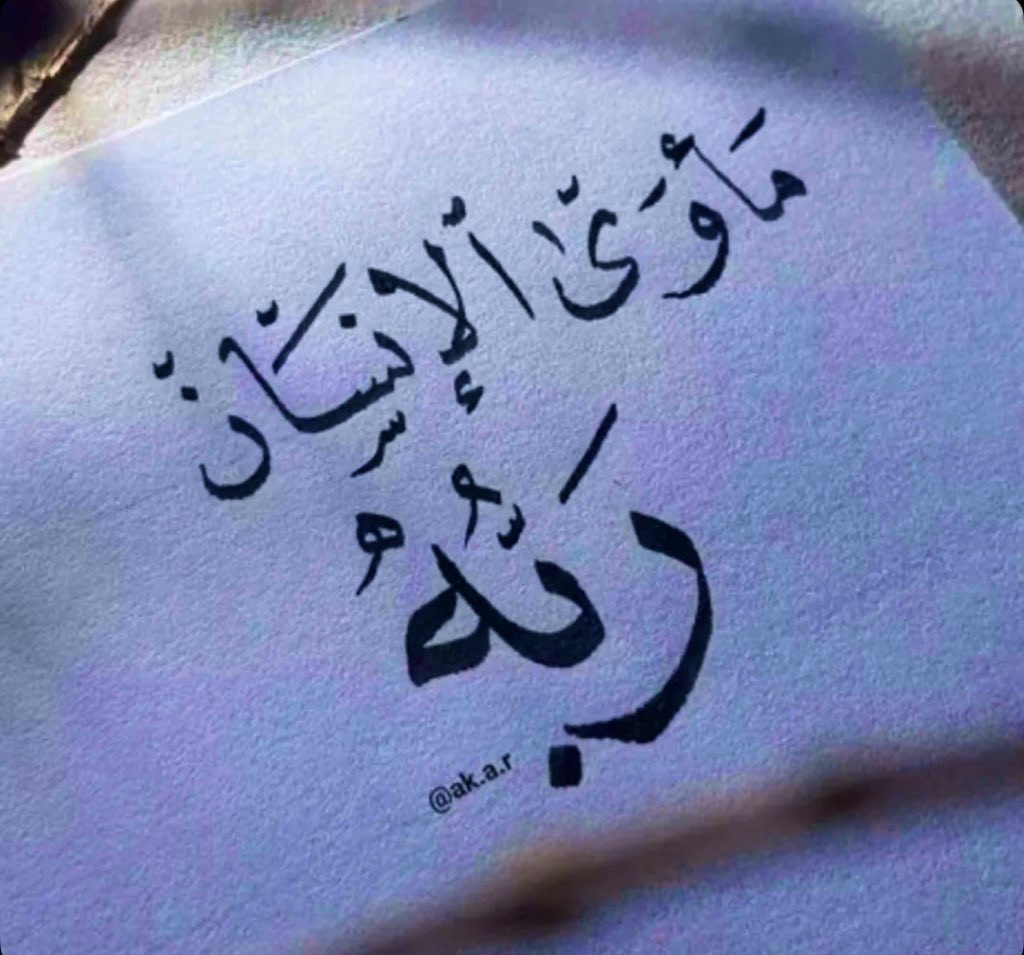 مَأوَىٰ ألإنسَان
رَبُّهُ
@ak.a.r